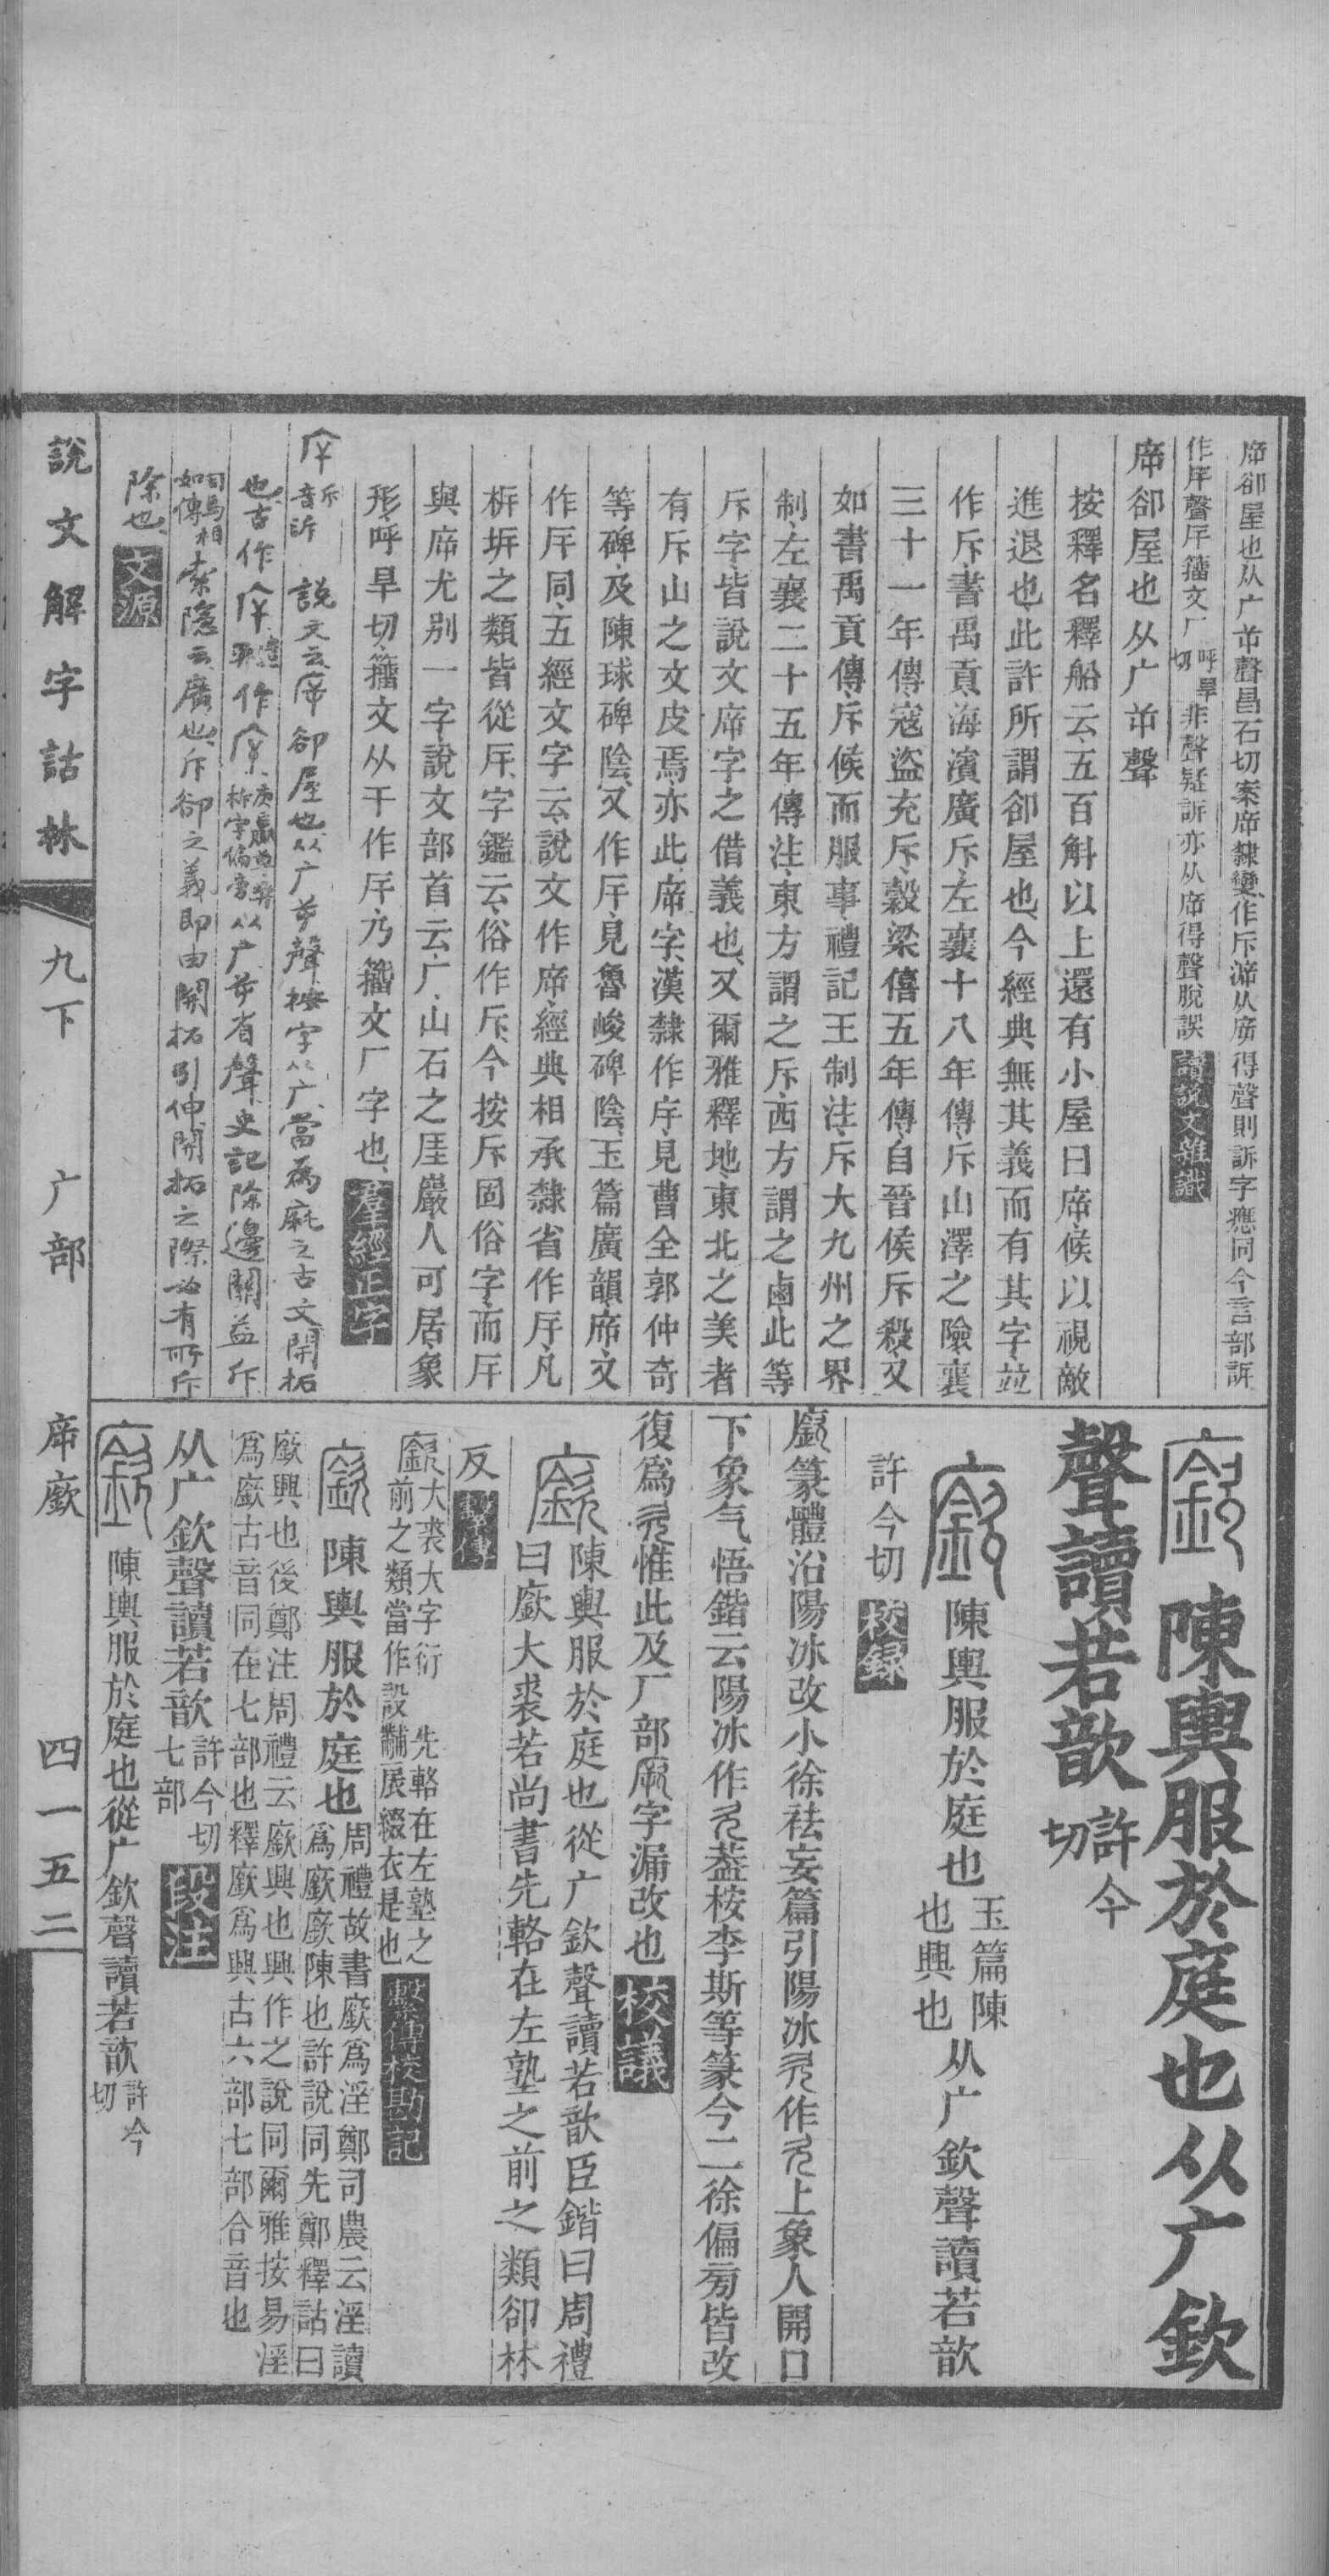 㡿卻屋也从广屰聲昌石切案㡿隸變作斥㴑从㡿得聲則訴字應同今言部訴
作㡿聲厈籀文厂呼旱切非聲疑訴亦从㡿得聲脫誤讀說文雜識
㡿卻屋也从广屰聲
按釋名釋船云五百斛以上還有小屋曰㡿候以視敵
進退也此許所謂卻屋也今經典無其義而有其字竝
作斥書禹貢海濱廣斥左襄十八年傳斥山澤之險襄
三十一年傳寇盜充斥穀梁僖五年傳自晉侯斥殺又
如書禹貢傳斥候而服事禮記王制注斥大九州之界
制左襄二十五年傳注東方謂之斥西方謂之鹵此等
斥字皆說文㡿字之借義也又爾雅釋地東北之美者
有斥山之文皮焉亦此㡿字漢隸作庌見曹全郭仲奇
等碑及陳球碑陰又作厈見魯峻碑陰玉篇廣韻㡿文
作厈同五經文字云說文作㡿經典相承隸省作厈凡
㭊坼之類皆從厈字鑑云俗作斥今按斥固俗字而厈
與㡿尤別一字說文部首云厂山石之厓巖人可居象
形呼旱切籀文从干作厈乃籀文厂字也羣經正字
斥音訴 說文云㡿卻屋也从广屰聲按字从广當為㢉之古文開拓
从广屰省聲史記除邊關益斥
司馬相如傳索隱云廣也斥卻之義即由開拓引伸開拓之際必有所斥
除也文源
陳輿服於庭也从广欽
聲讀若歆許今切
陳輿服於庭也玉篇陳也興也从广欽聲讀若歆
許今切校錄
廞篆體沿陽冰改小徐祛妄篇引陽冰作上象人開口
下象气悟鍇云陽冰作葢桉李斯等篆今二徐偏㫄皆改
復爲惟此及厂部字漏改也校議
陳輿服於庭也從广欽聲讀若歆臣鍇曰周禮
曰廞大裘若尚書先輅在左塾之前之類卻林
反繫傳
廞大裘大字衍 先輅在左塾之
前之類當作設黼扆綴衣是也繫傳校勘記
陳輿服於庭也周禮故書廞爲淫鄭司農云淫讀
爲廞廞陳也許說同先鄭釋詁曰
廞興也後鄭注周禮云廞興也興作之說同爾雅按易淫
爲廞古音同在七部也釋廞爲興古六部七部合音也
从广欽聲讀若歆許今切七部段注
陳輿服於庭也從广欽聲讀若歆許今切
說文解字詁林 九下 广部 㡿廞 四一五二